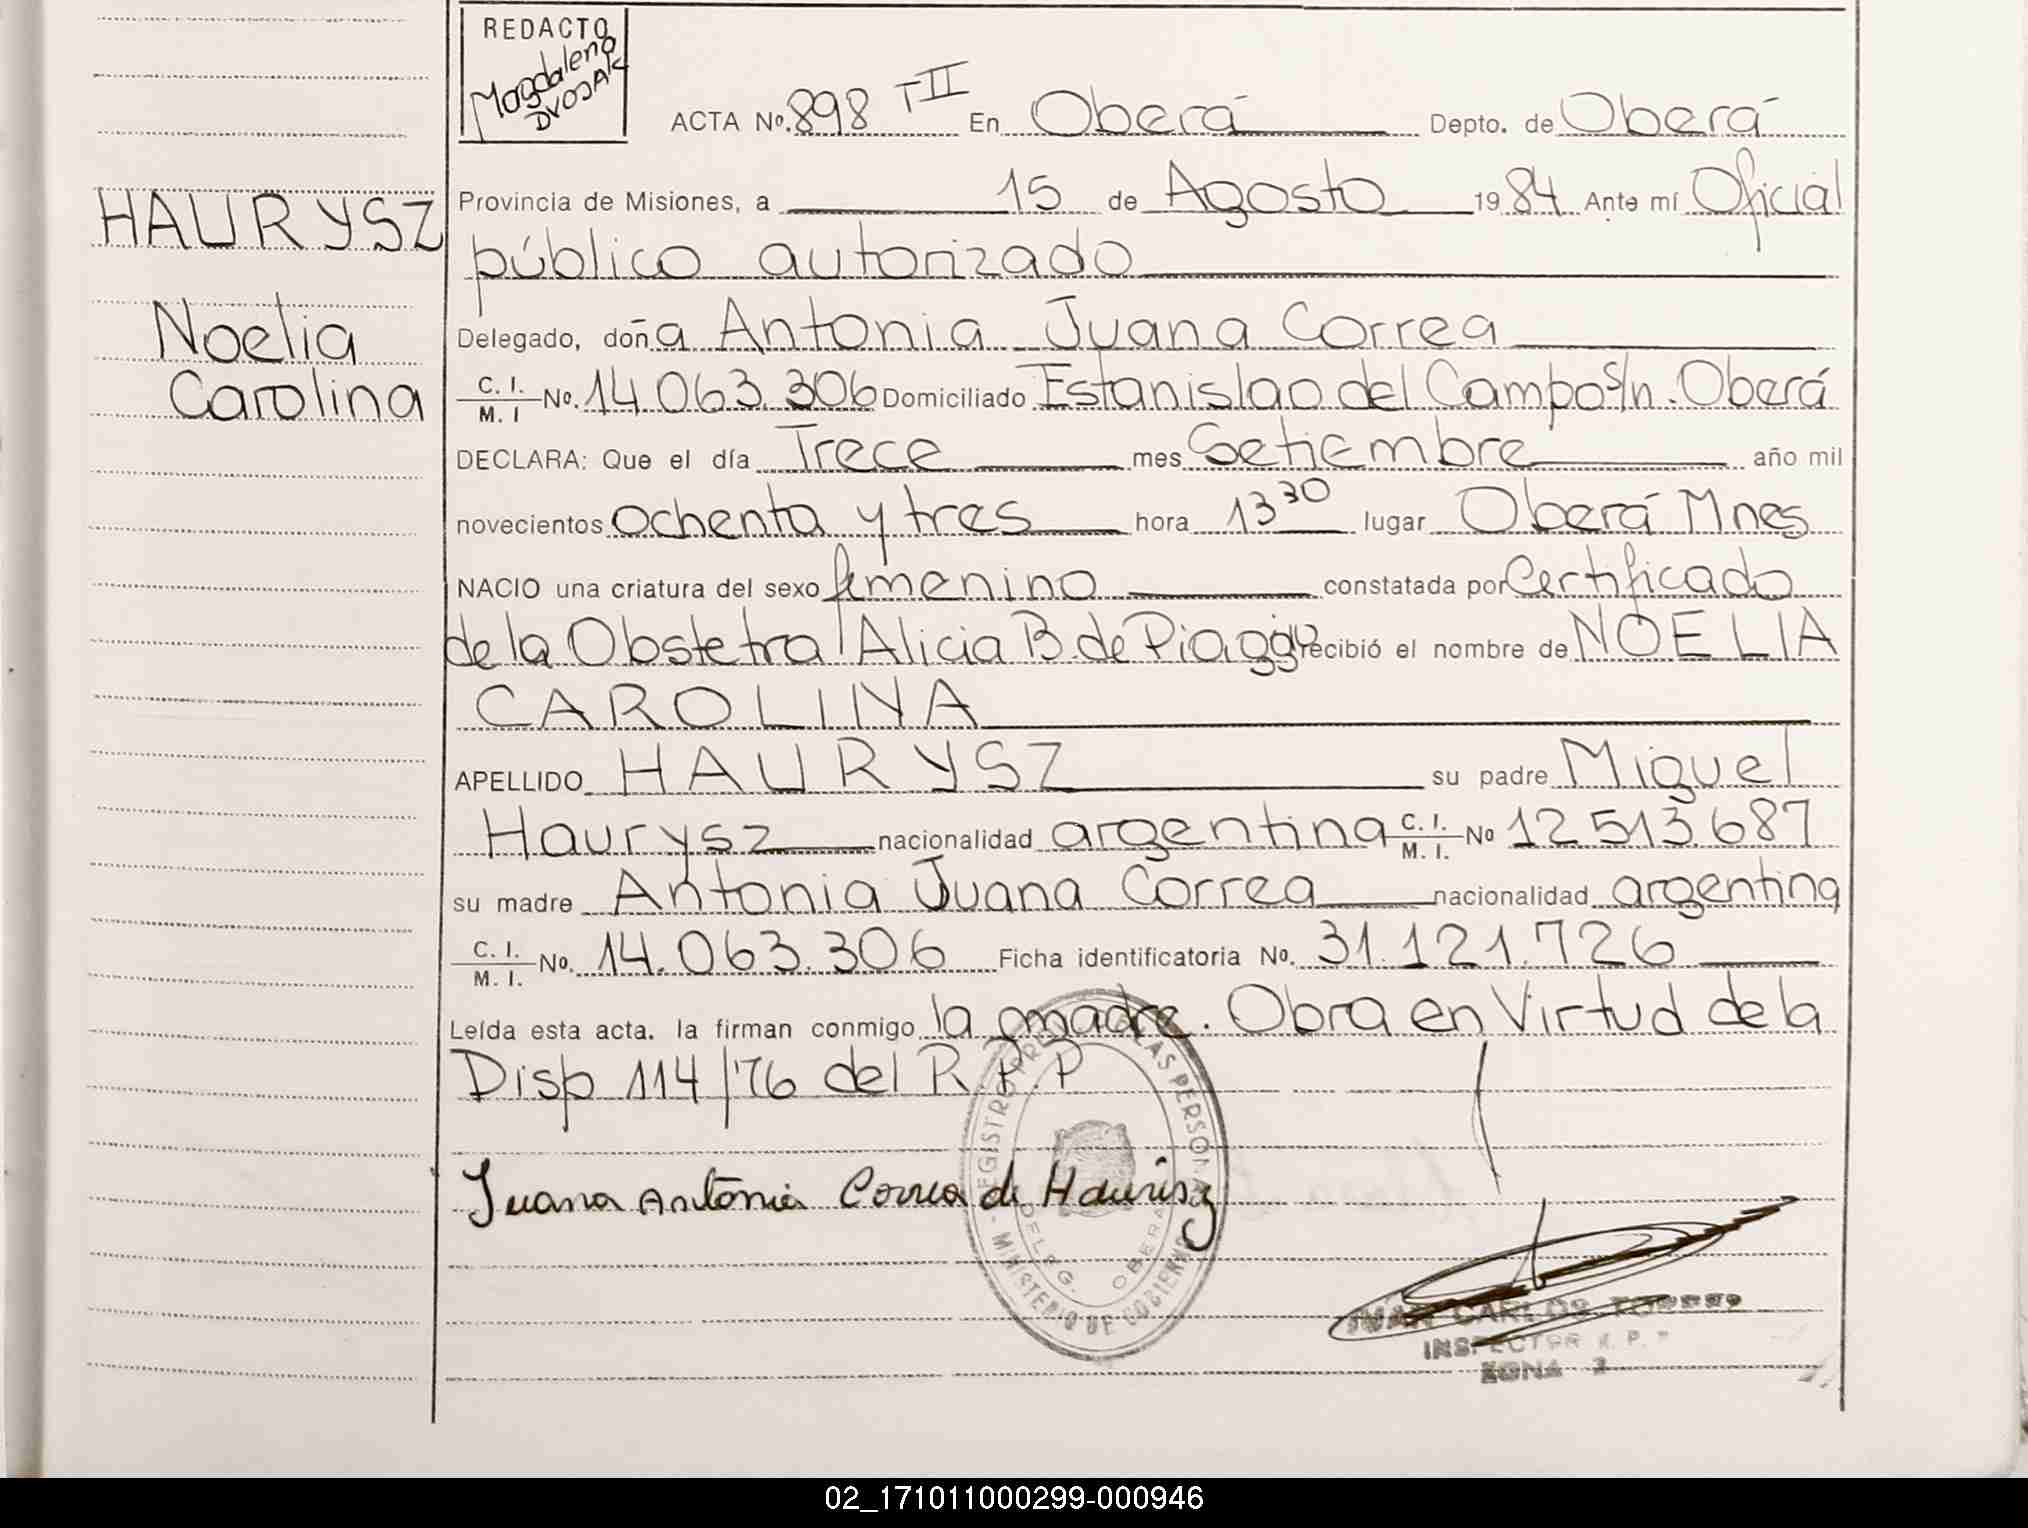 REDACTO
Magdalena
DVOJAK
ACTA Nº. 898 TII En Oberá Depto. de Oberá
HAURYSZ
Noelia
Carolina
Provincia de Misiones, a 15 de Agosto 1984 Ante mí Oficial
público autorizado
Delegado, doña Antonia Juana Correa
C. I. / M. I Nº. 14.063.306 Domiciliado Estanislao del Campo s/n. Oberá
DECLARA: Que el día Trece mes Setiembre año mil
novecientos ochenta y tres hora 13 30 lugar Oberá Mnes
NACIO una criatura del sexo femenino constatada por Certificado
de la Obstetra Alicia B. de Piaggio recibió el nombre de NOELIA
CAROLINA
APELLIDO HAURYSZ su padre Miguel
Haurysz nacionalidad argentina C. I. / M. I. Nº 12.513.687
su madre Antonia Juana Correa nacionalidad argentina
C. I. / M. I. Nº. 14.063.306 Ficha identificatoria Nº. 31.121.726
Leída esta acta. la firman conmigo la madre. Obra en Virtud de la
Disp 114/76 del R.P.P
REGISTRO PROV. DE LAS PERSONAS
DELEG. OBERA
MINISTERIO DE GOBIERNO
Juana Antonia Correa de Haurisz
JUAN CARLOS TORRES
INSPECTOR R. P. P.
ZONA 2
02_171011000299-000946